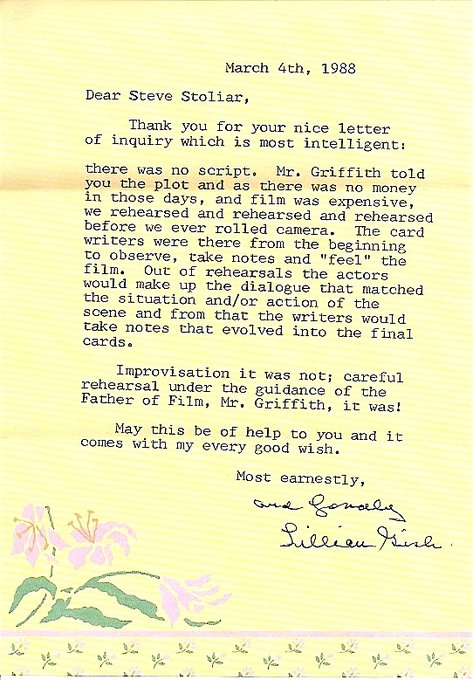 March 4th, 1988
Dear Steve Stoliar,
Thank you for your nice letter
of inquiry which is most intelligent:
there was no script. Mr. Griffith told
you the plot and as there was no money
in those days, and film was expensive,
we rehearsed and rehearsed and rehearsed
before we ever rolled camera. The card
writers were there from the beginning
to observe, take notes and "feel" the
film. Out of rehearsals the actors
would make up the dialogue that matched
the situation and/or action of the
scene and from that the writers would
take notes that evolved into the final
cards.
Improvisation it was not; careful
rehearsal under the guidance of the
Father of Film, Mr. Griffith, it was!
May this be of help to you and it
comes with my every good wish.
Most earnestly,
and
Lillian Gish.